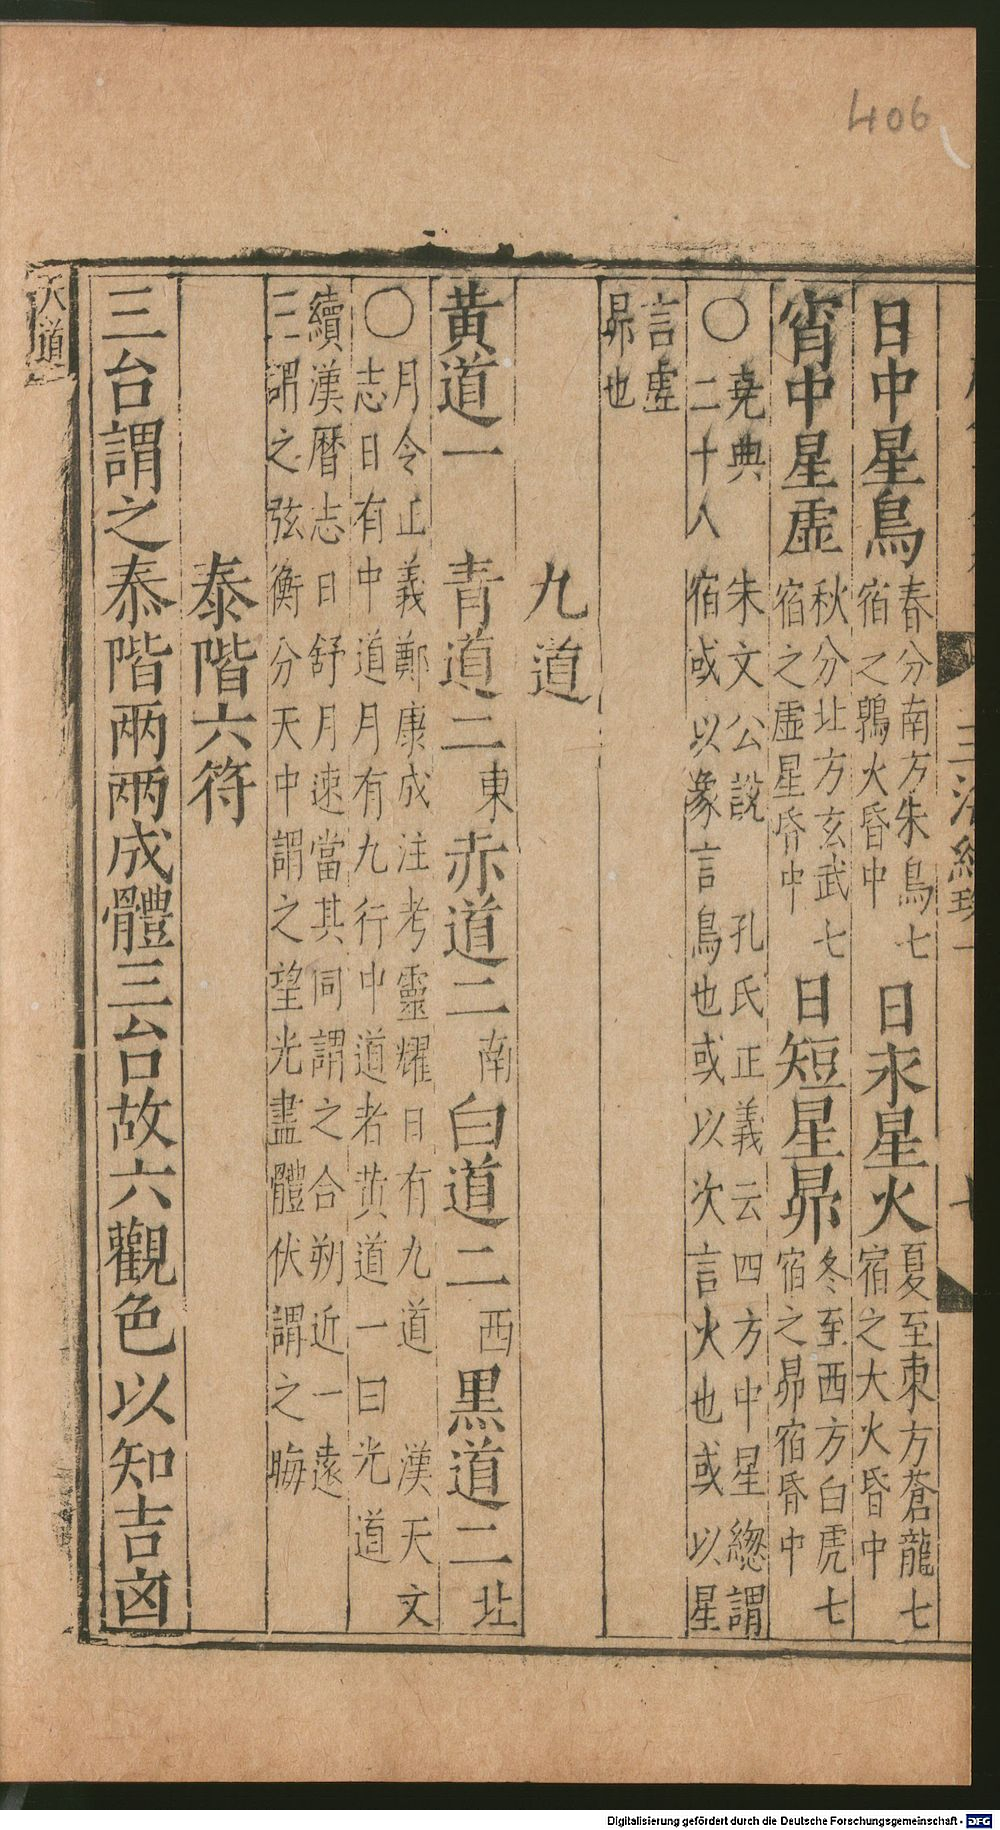 406
日中星鳥 春分南方朱鳥七宿之鶉火昏中 日永星火 夏至東方蒼龍七宿之大火昏中
宵中星虛 秋分北方玄武七宿之虛星昏中 日短星昴 冬至西方白虎七宿之昴宿昏中
○ 堯典 朱文公說 孔氏正義云四方中星緫謂
二十八宿或以象言鳥也或以次言火也或以星
言虛
昴也
九道
黃道一 青道二 東 赤道二 南 白道二 西 黑道二 北
○ 月令正義鄭康成注考靈耀日有九道 漢天文
志日有中道月有九行中道者黃道一曰光道
續漢曆志日舒月速當其同謂之合朔近一遠
三謂之弦衡分天中謂之望光盡體伏謂之晦
泰階六符
三台謂之泰階兩兩成體三台故六觀色以知吉凶
天道
Digitalisierung gefördert durch die Deutsche Forschungsgemeinschaft - DFG